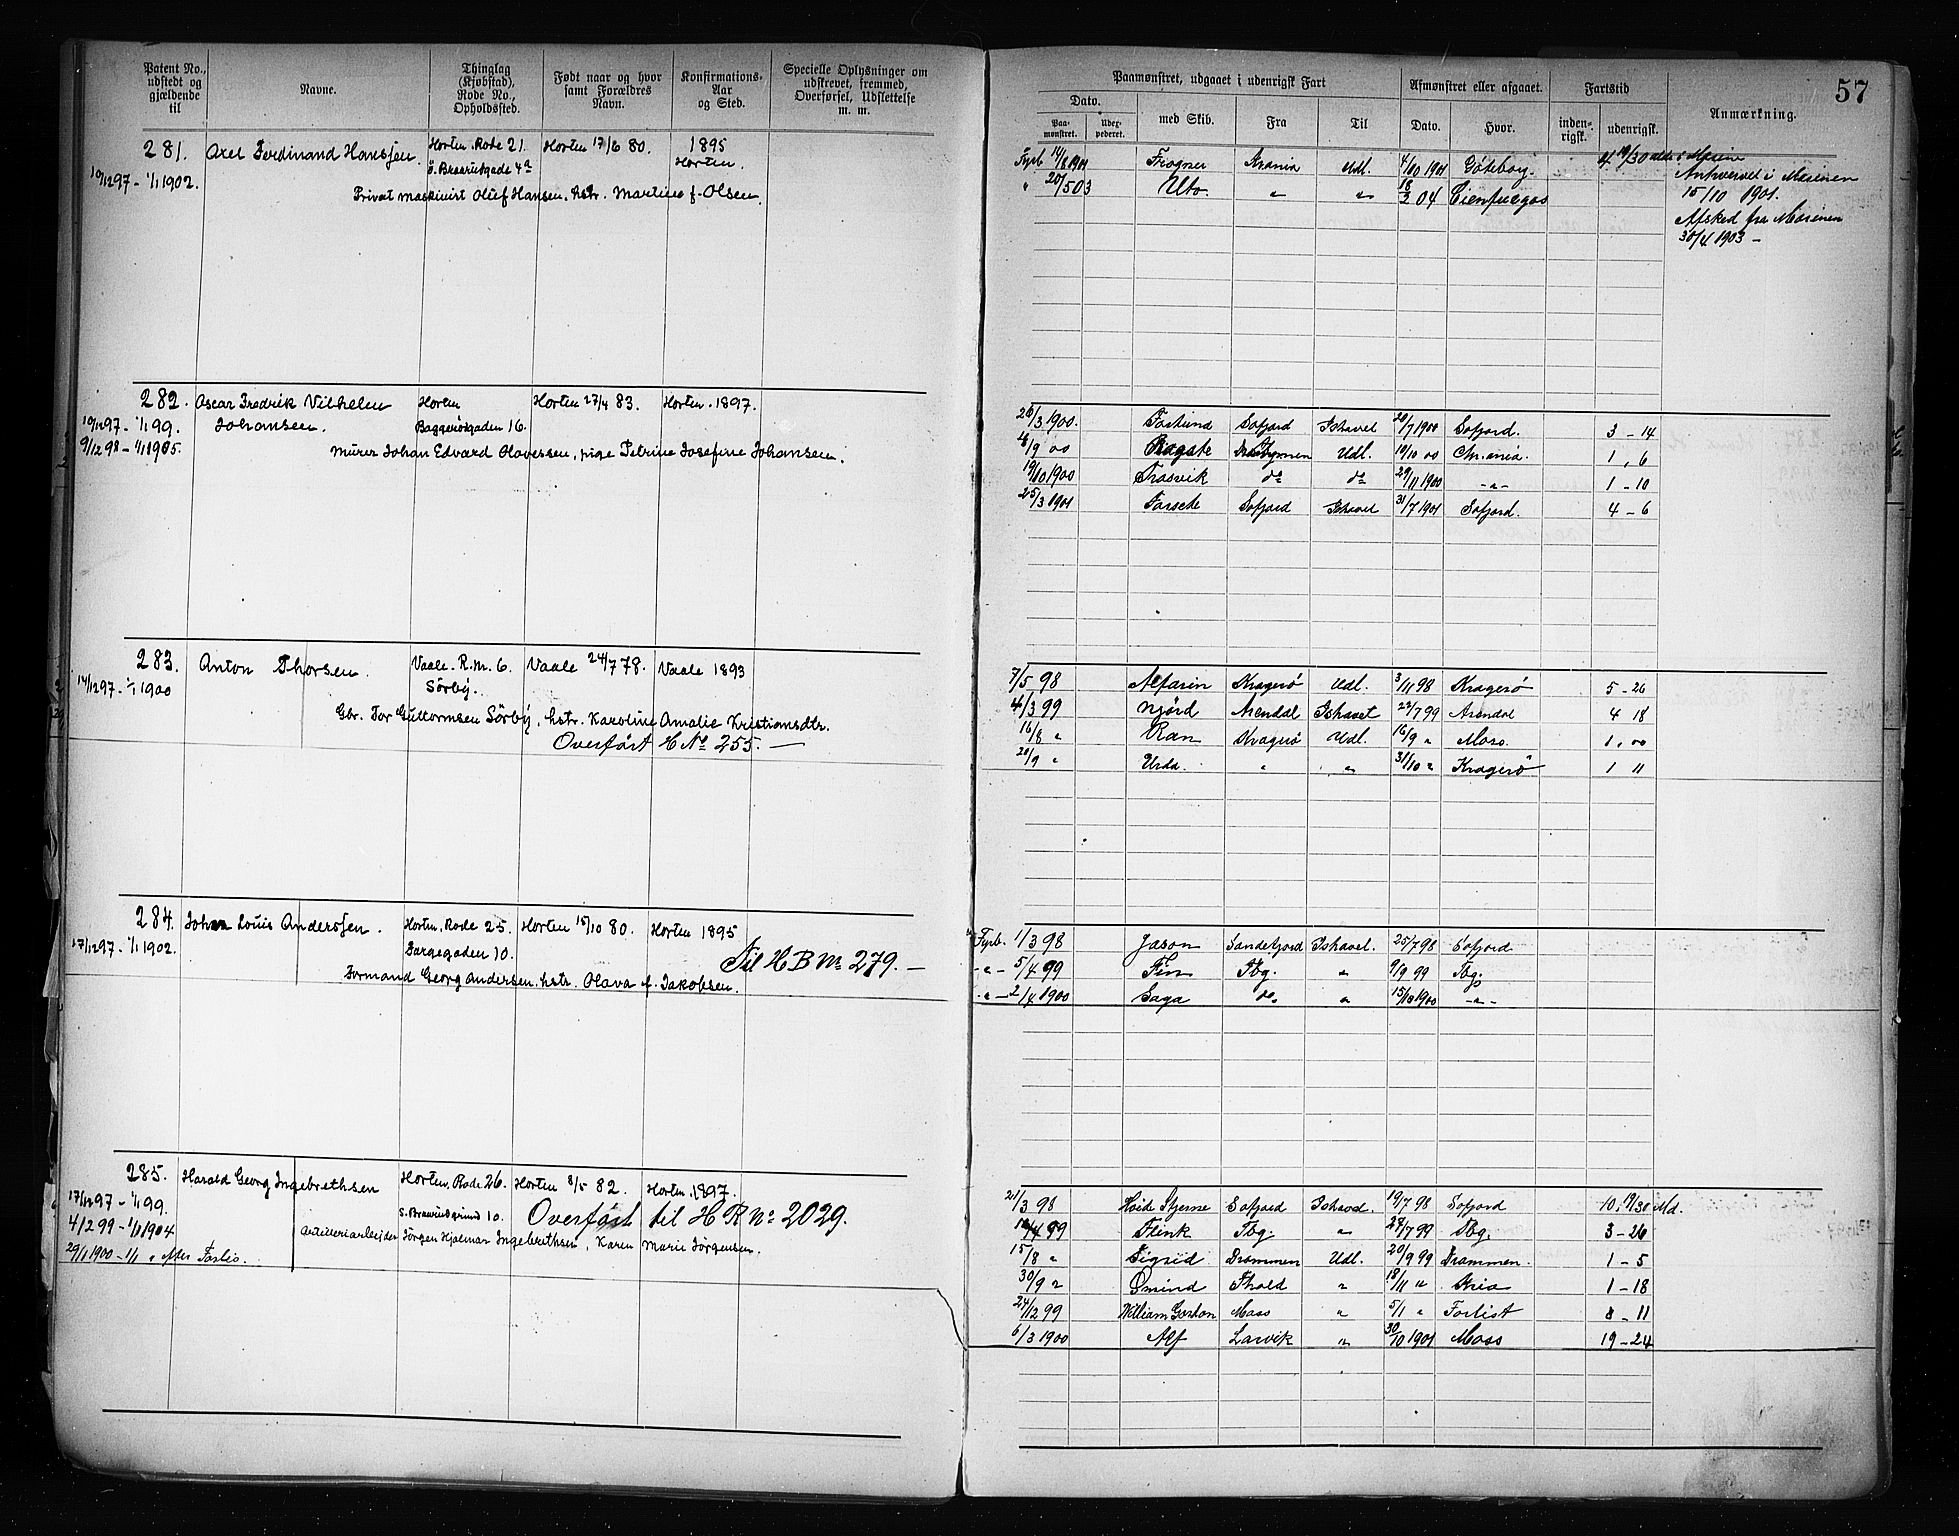 57
Patent No., udstedt og gjældende til
Navne.
Thinglag (Kjøbstad), Rode No., Opholdssted.
Født naar og hvor samt Forældres Navn.
Konfirmations-Aar og Sted.
Specielle Oplysninger om udskrevet, fremmed, Overførsel, Udslettelse m. m.
Paamønstret, udgaaet i udenrigsk Fart
Afmønstret eller afgaaet.
Fartstid
Anmærkning.
Dato.
Paa-mønstret.
med Skib.
Fra
Til
Dato.
Hvor.
inden-rigsk.
udenrigsk.
281. Axel Ferdinand Hansen. Horten. Rode 21. Horten 17/6 80. 1895 Horten.
10/12 97 - 1/1 1902.
Privat maskinist Oluf Hansen. hstr. Martine f. Olsen.
Fyrb 14/8 1901 Frogner Krania Udl. 4/10 1901 Göteborg.
" 20/5 03 Uto. " " 18/2 04 Cienfuegos
Anhvervet i Marinen
15/10 1901.
Afsked fra Marinen
30/4 1903 -
282. Oscar Fredrik Vilhelm Johansen. Horten Horten 27/4 83. Horten. 1897.
10/12 97 - 1/1 99. 16.
9/12 98 - 1/1 1905.
murer Johan Edvard Olavessen, pige Petrine Josefine Johansen.
26/3 1900. Fortuna Sofjord Ishavet 20/7 1900 Sofjord. 3 - 14
4/9 00 Udl. 19/10 00 Chr.ania. 1, 6
19/10 1900 Frosvik do do 29/11 1900 -"- 1 - 10
25/3 1901 Sofjord Ishavet 31/7 1901 Sofjord. 4 - 6
283. Anton Thorsen. Vaale. R.m. 6. Vaale 24/7 78. Vaale 1893
14/12 97 - 1/1 1900 Sörby.
Gbr. Tor Guttormsen Sörby, hstr. Karoline Amalie Kristiansdtr.
Overført H No 255. —
7/5 98 Alfarin Kragerö Udl. 3/11 98 Kragerö 5 - 26
4/3 99 Njörd Arendal Ishavet 22/7 99 Arendal 4 18
16/8 " Ran Kragerö Udl. 16/9 " Moss. 1, 00
20/9 " Urda. " " 31/10 " Kragerö 1 11
284. Johan Louis Andersen. Horten. Rode 25. Horten 15/10 80. Horten 1895
17/12 97 - 1/1 1902. 10. Til H B No 279. —
Formand Georg Andersen. hstr. Olava f. Jakobsen.
Fyrb. 1/3 98 Jason Sandefjord Ishavet. 25/7 98 Sofjord
-"- 5/4 99 Fin Tbg. " 9/9 99 Tbg.
-"- 2/4 1900 Saga do. " 15/10 1900 -"-
285. Harald Georg Ingebrethsen Horten, Rode 26. Horten 8/5 82. Horten. 1897.
17/12 97 - 1/1 99. 10. Overført til H R No 2029.
4/2 99 - 1/1 1904 Artilleriarbejder Jörgen Hjalmar Ingebrethsen, Karen Marie Jörgensen.
29/1 1900 - 1/1 " efter Forlis.
21/3 98 Hvide Stjerne Sofjord Ishavet. 19/7 98 Sofjord 10. 19/30 Md.
12/4 99 Flink Tbg. " 28/7 99 Tbg. 3 - 26
15/8 " Sigrid Drammen Udl. 20/9 99 Drammen. 1 - 5
30/9 " Ömind Thold " 18/11 " Kria 1 - 18
24/12 99 William Moss " 5/1 " Forlist 11
6/3 1900 Alf Larvik " 30/10 1901 Moss 19 - 24